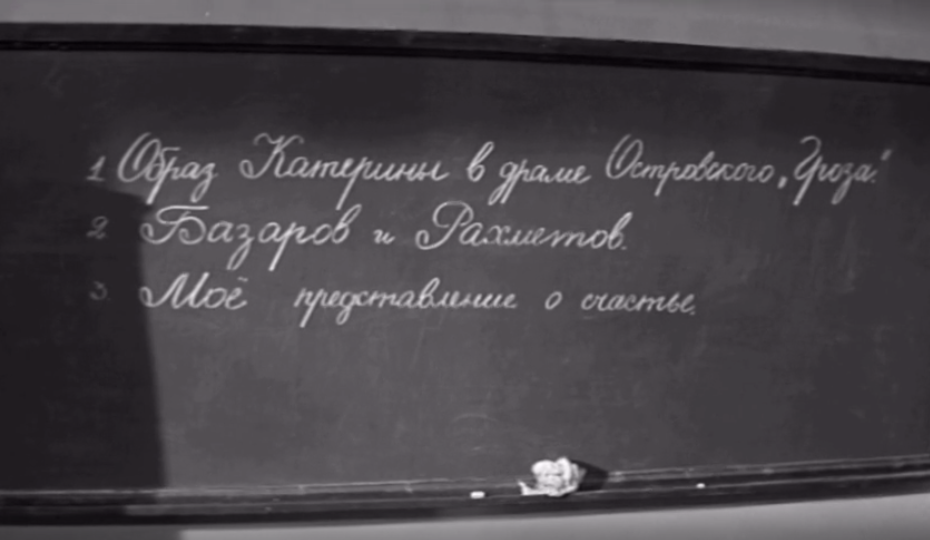 1 Образ Катерины в драме Островского „Гроза“.
2 Базаров и Рахметов.
3. Моё представление о счастье.